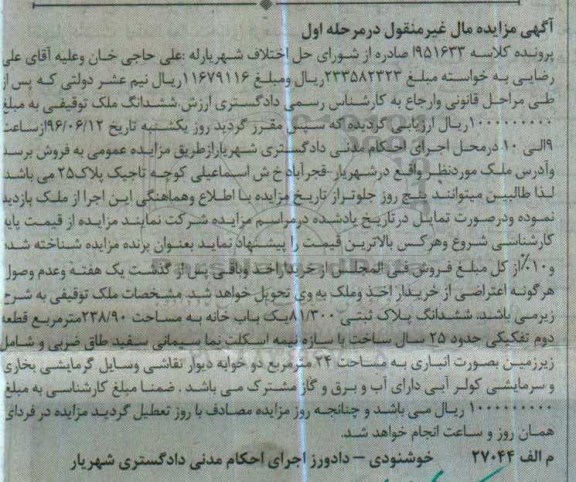 آگهی مزایده مال غیرمنقول درمرحله اول
پرونده کلاسه ۹۵۱۶۳۳ا صادره از شورای حل اختلاف شهریارله :علی حاجی خان وعلیه آقای علی
رضایی به خواسته مبلغ ۲۳۳۵۸۲۳۲۳ریال ومبلغ ۱۱۶۷۹۱۱۶ریال نیم عشر دولتی که پس از
طی مراحل قانونی وارجاع به کارشناس رسمی دادگستری ارزش ششدانگ ملک توقیفی به مبلغ
۱۰۰۰۰۰۰۰۰۰ریال ارزیابی گردیده که سپس مقرر گردید روز یکشنبه تاریخ ۹۶/۰۶/۱۲ازساعت
۹الی ۱۰ درمحل اجرای احکام مدنی دادگستری شهریارازطریق مزایده عمومی به فروش برسد
وآدرس ملک موردنظر واقع درشهریار-قجرآباد خ ش اسماعیلی کوچه تاجیک پلاک۲۵ می باشد
لذا طالبین میتوانند پنج روز جلوتراز تاریخ مزایده با اطلاع وهماهنگی این اجرا از ملک بازدید
نموده ودرصورت تمایل درتاریخ یادشده درمراسم مزایده شرکت نمایند مزایده از قیمت پایه
کارشناسی شروع وهرکس بالاترین قیمت را پیشنهاد نماید بعنوان برنده مزایده شناخته شده
و۱۰٪از کل مبلغ فروش فی المجلس از خریدار اخذ وباقی پس از گذشت یک هفته وعدم وصول
هرگونه اعتراضی از خریدار اخذ وملک به وی تحویل خواهد شد. مشخصات ملک توقیفی به شرح
زیرمی باشد، ششدانگ پلاک ثبتی ۸۱/۳۰۰یک باب خانه به مساحت ۲۳۸/۹۰مترمربع قطعه
دوم تفکیکی حدود ۲۵ سال ساخت با سازه نیمه اسکلت نما سیمانی سفید طاق ضربی و شامل
زیرزمین بصورت انباری به مساحت ۲۴ مترمربع دو خوابه دیوار نقاشی وسایل گرمایشی بخاری
و سرمایشی کولر آبی دارای آب و برق و گاز مشترک می باشد . ضمنا مبلغ کارشناسی به مبلغ
۱۰۰۰۰۰۰۰۰۰ ریال می باشد و چنانچه روز مزایده مصادف با روز تعطیل گردید مزایده در فردای
همان روز و ساعت انجام خواهد شد.
م الف ۲۷۰۴۴ خوشنودی – دادورز اجرای احکام مدنی دادگستری شهریار